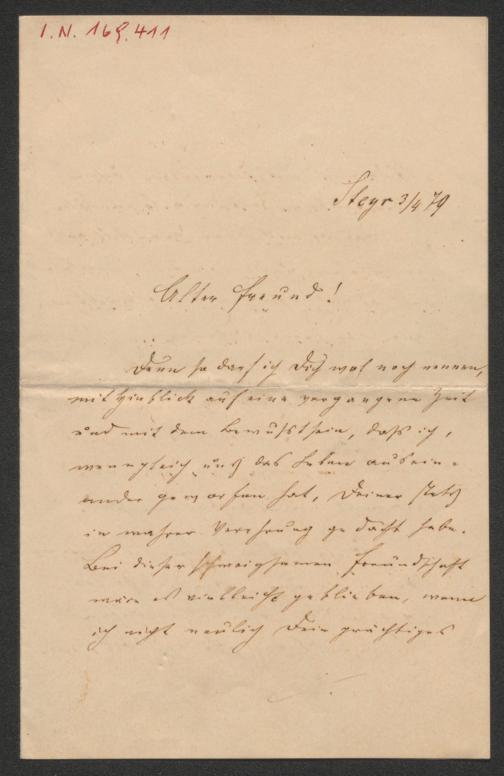 I.N. 169.411
Steyr 3/4 79
Alter Freund!
Denn so darf ich Dich wol noch nennen,
mit Hinblick auf eine vergangene Zeit
und mit dem Bewußtsein, daß ich,
wenngleich uns das Leben ausein-
ander geworfen hat, Deiner stets
in wahrer Verehrung gedacht habe.
Bei dieser schweigsamen Freundschaft
wäre es vielleicht geblieben, wenn
ich nicht neulich Dein prächtiges